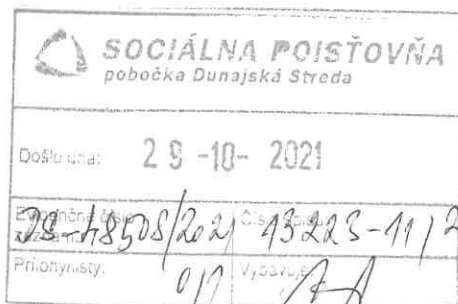 SOCIÁLNA POISŤOVŇA
pobočka Dunajská Streda
Došlo dňa: 29 -10- 2021
Evidenčné číslo
záznamu: Číslo spisu:
48508/2021 13223-11/2
Prílohy/listy: Vybavuje: